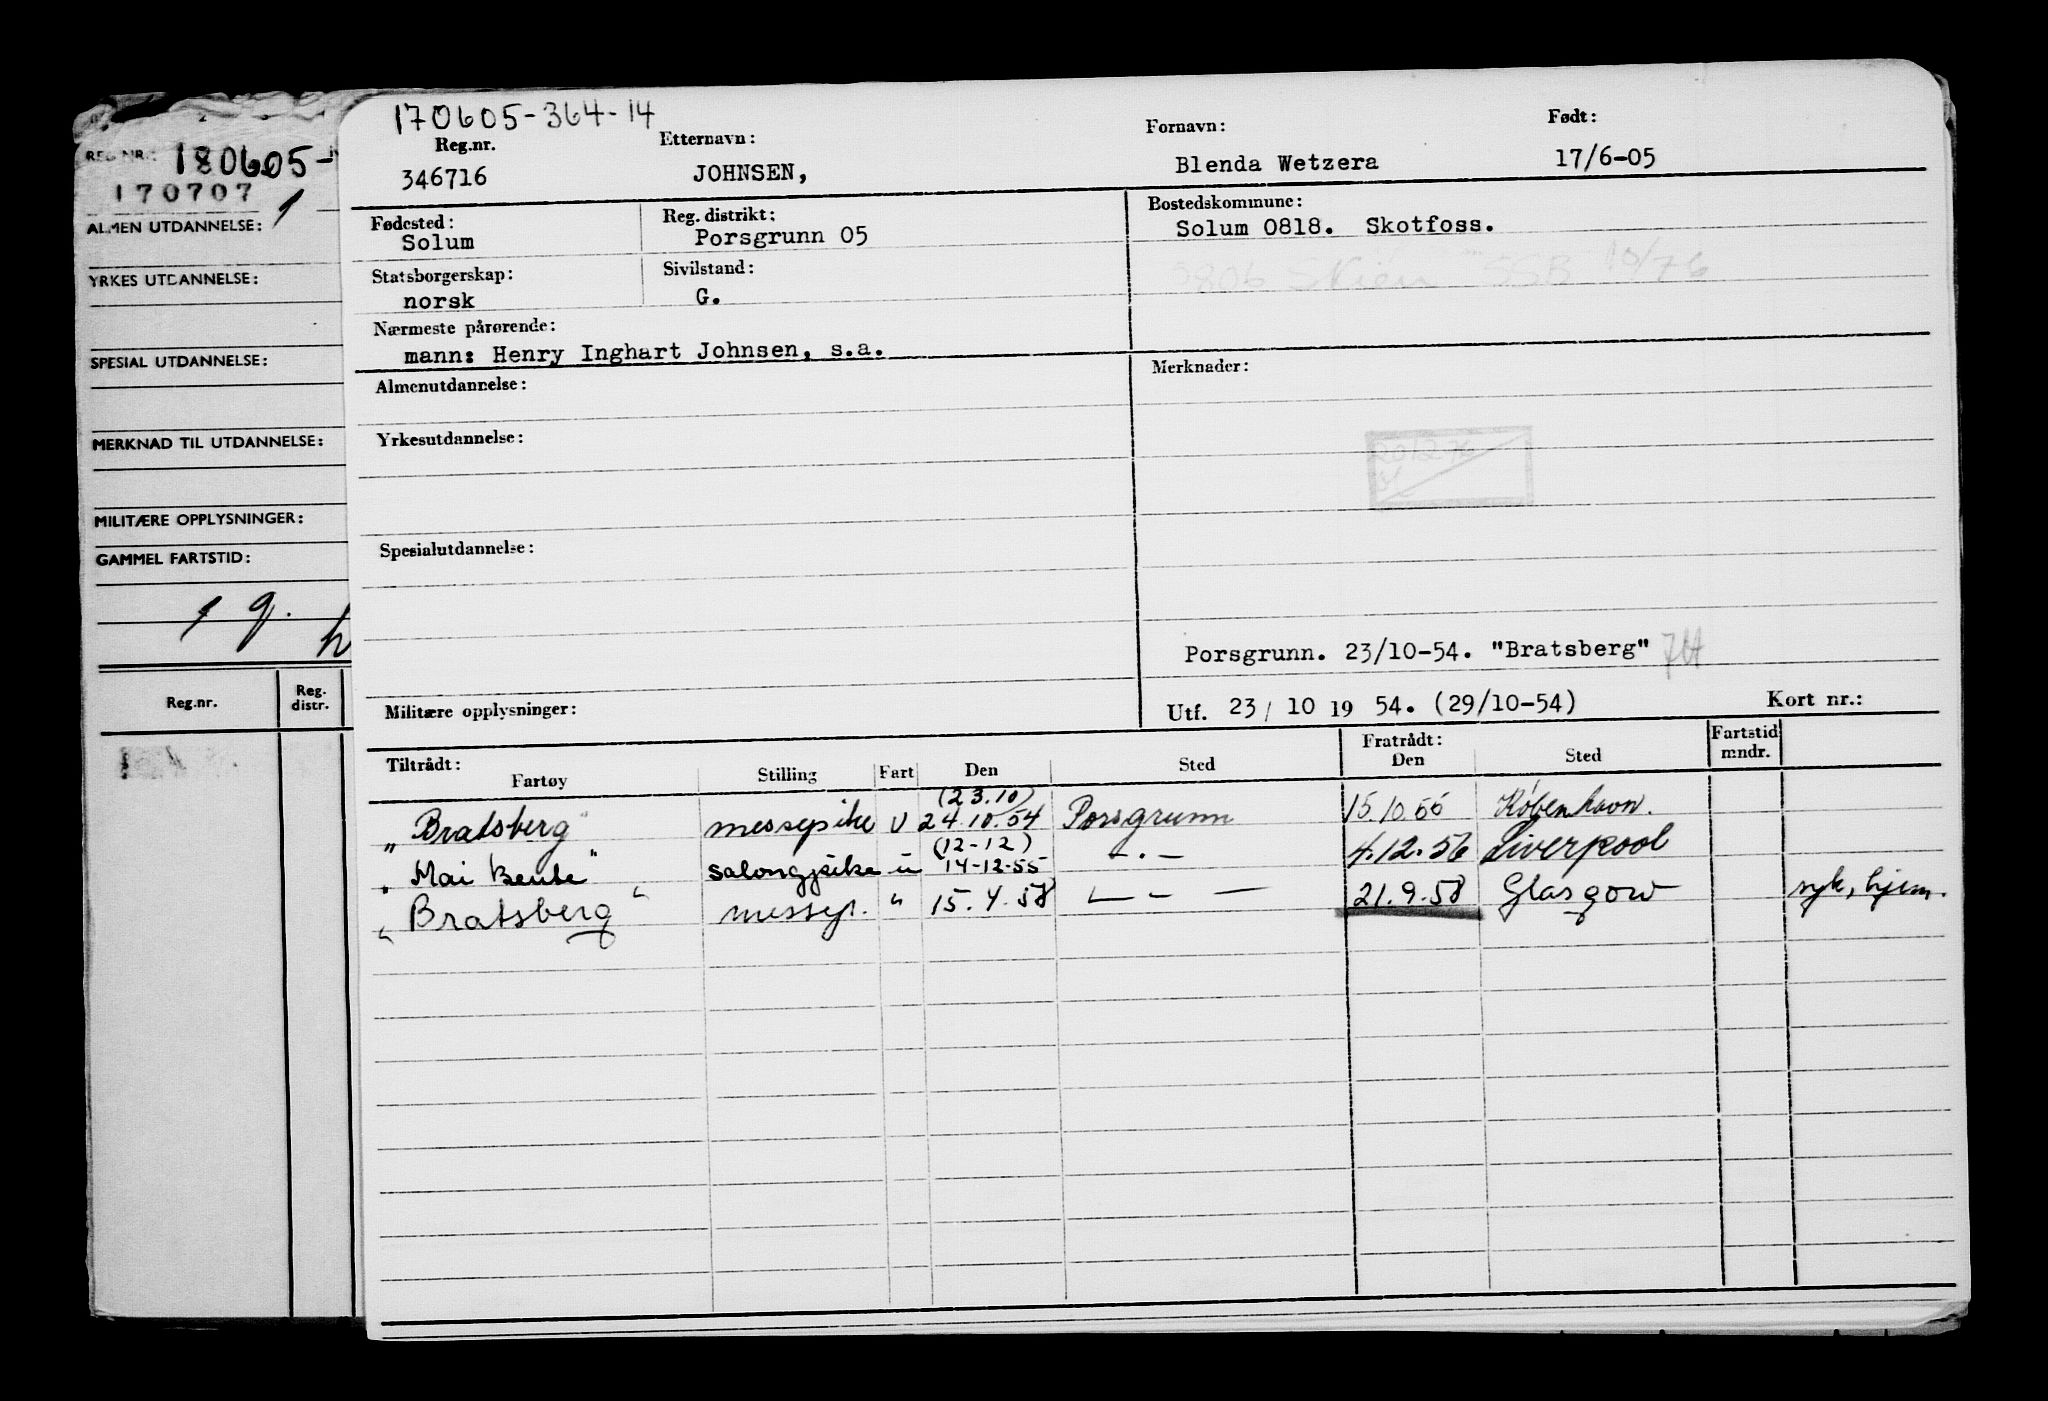 REG.NR.: 180605-
170707 1
ALMEN UTDANNELSE:
YRKES UTDANNELSE:
SPESIAL UTDANNELSE:
MERKNAD TIL UTDANNELSE:
MILITÆRE OPPLYSNINGER:
GAMMEL FARTSTID:
Reg.nr. Reg. distr.
170605-364-14
Reg.nr. Etternavn: Fornavn: Født:
346716 JOHNSEN, Blenda Wetzera 17/6-05
Fødested: Reg. distrikt: Bostedskommune:
Solum Porsgrunn 05 Solum 0818. Skotfoss.
Statsborgerskap: Sivilstand:
norsk G.
0806 Skien SSB 10/76
Nærmeste pårørende:
mann: Henry Inghart Johnsen, s.a.
Almenutdannelse: Merknader:
Yrkesutdannelse:
Spesialutdannelse:
Porsgrunn. 23/10-54. "Bratsberg"
Militære opplysninger: Utf. 23/ 10 19 54. (29/10-54) Kort nr.:
Tiltrådt: Fratrådt: Fartstid mndr.
Fartøy Stilling Fart Den Sted Den Sted
(23.10)
„Bratsberg" messepike U 24.10.54 Porsgrunn 15.10.55 København.
(12-12)
„Mai Bente" salongpike u 14-12-55 - . - 4.12.56 Liverpool
„Bratsberg" messep. " 15.4.58 - - - 21.9.58 Glasgow syk, hjem.